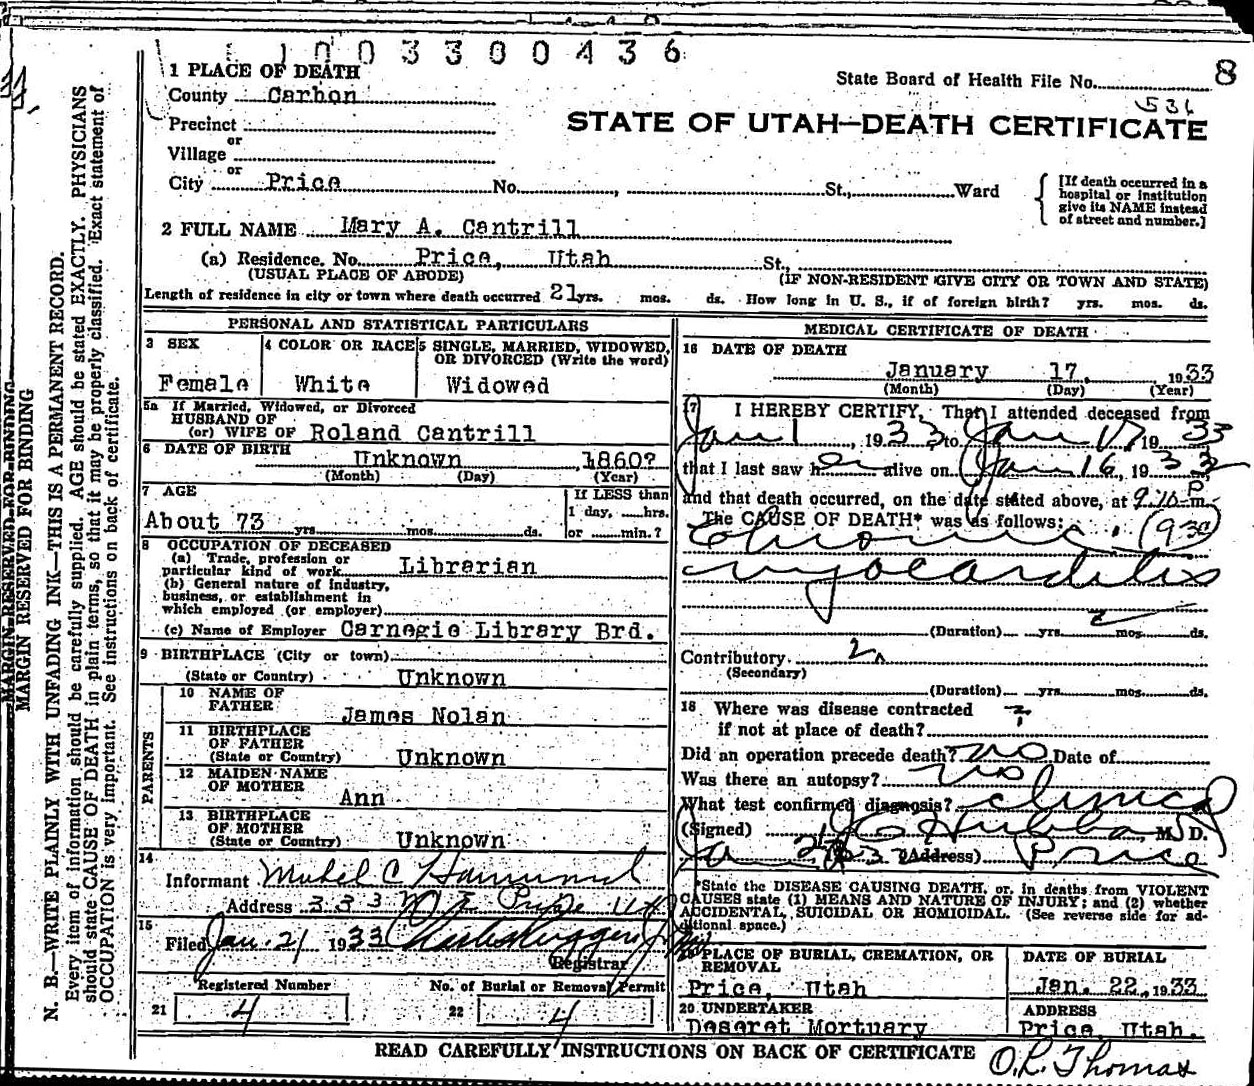 1003300436
1 PLACE OF DEATH
State Board of Health File No. 8
County Carbon
536
Precinct
STATE OF UTAH—DEATH CERTIFICATE
or
Village
or
City Price No. , St., Ward
[If death occurred in a
hospital or institution
give its NAME instead
of street and number.]
2 FULL NAME Mary A. Cantrill
(a) Residence. No. Price, Utah St.,
(USUAL PLACE OF ABODE) (IF NON-RESIDENT GIVE CITY OR TOWN AND STATE)
Length of residence in city or town where death occurred 21yrs. mos. ds. How long in U. S., if of foreign birth? yrs. mos. ds.
PERSONAL AND STATISTICAL PARTICULARS
3 SEX
Female
4 COLOR OR RACE
White
5 SINGLE, MARRIED, WIDOWED,
OR DIVORCED (Write the word)
Widowed
5a If Married, Widowed, or Divorced
HUSBAND OF
(or) WIFE OF Roland Cantrill
6 DATE OF BIRTH Unknown , 1860?
(Month) (Day) (Year)
7 AGE
About 73 yrs. mos. ds.
If LESS than
1 day, hrs.
or min.?
8 OCCUPATION OF DECEASED
(a) Trade, profession or
particular kind of work Librarian
(b) General nature of industry,
business, or establishment in
which employed (or employer)
(c) Name of Employer Carnegie Library Brd.
9 BIRTHPLACE (City or town)
(State or Country) Unknown
PARENTS
10 NAME OF
FATHER James Nolan
11 BIRTHPLACE
OF FATHER
(State or Country) Unknown
12 MAIDEN NAME
OF MOTHER Ann
13 BIRTHPLACE
OF MOTHER
(State or Country) Unknown
14
Informant Mabel C Hammond
Address 333 N 7 E Price Ut
15
Filed Jan. 21 1933
Registrar
Registered Number
21 4
No. of Burial or Removal Permit
22 4
MEDICAL CERTIFICATE OF DEATH
16 DATE OF DEATH
January 17, 1933
(Month) (Day) (Year)
17 I HEREBY CERTIFY, That I attended deceased from
Jan 1, 1933 to Jan 17 1933
that I last saw her alive on Jan 16, 1933
and that death occurred, on the date stated above, at 9:10 P m.
The CAUSE OF DEATH* was as follows:
Chronic
myocarditis
(Duration) yrs. mos. ds.
Contributory
(Secondary)
(Duration) yrs. mos. ds.
18 Where was disease contracted
if not at place of death? ?
Did an operation precede death? no Date of
Was there an autopsy? no
What test confirmed diagnosis? clinical
(Signed) M. D.
Jan (Address) Price
*State the DISEASE CAUSING DEATH, or, in deaths from VIOLENT
CAUSES state (1) MEANS AND NATURE OF INJURY; and (2) whether
ACCIDENTAL, SUICIDAL OR HOMICIDAL. (See reverse side for ad-
ditional space.)
PLACE OF BURIAL, CREMATION, OR
REMOVAL
Price, Utah
DATE OF BURIAL
Jan. 22, 1933
20 UNDERTAKER
Deseret Mortuary
ADDRESS
Price, Utah.
READ CAREFULLY INSTRUCTIONS ON BACK OF CERTIFICATE
O.L. Thomas
MARGIN RESERVED FOR BINDING
MARGIN RESERVED FOR BINDING
N. B.—WRITE PLAINLY WITH UNFADING INK—THIS IS A PERMANENT RECORD.
Every item of information should be carefully supplied. AGE should be stated EXACTLY. PHYSICIANS
should state CAUSE OF DEATH in plain terms, so that it may be properly classified. Exact statement of
OCCUPATION is very important. See instructions on back of certificate.